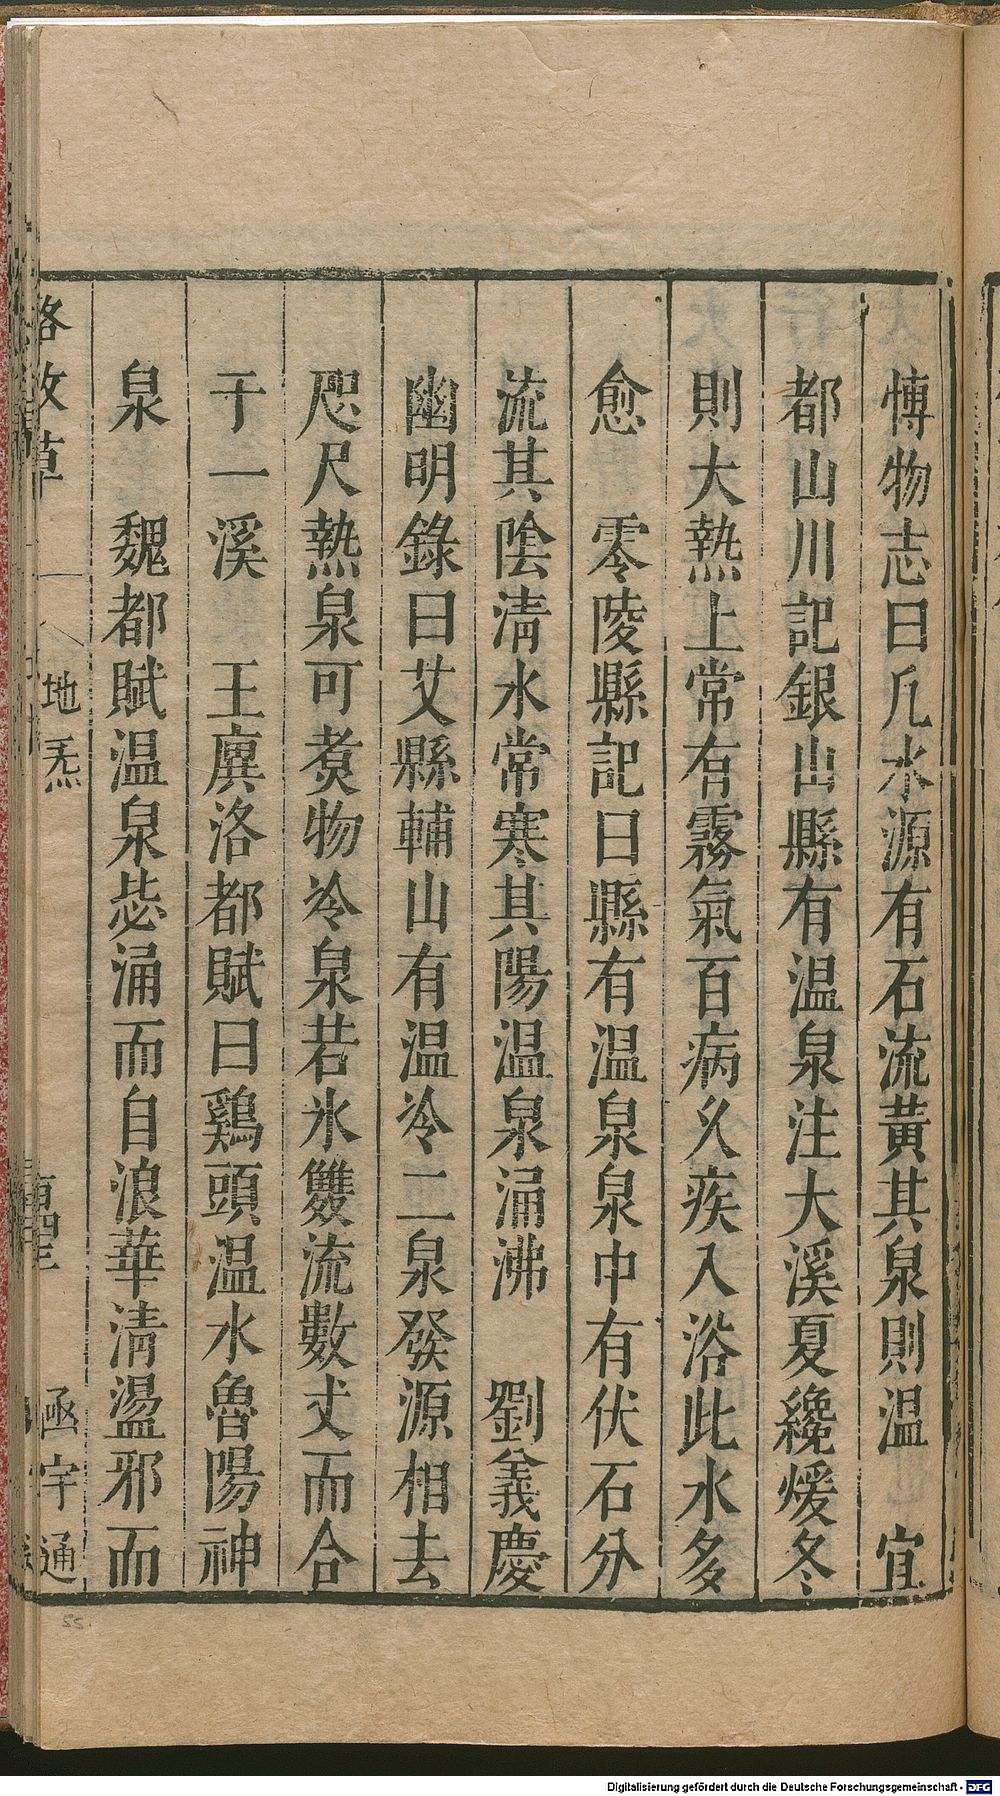 愽物志曰凡水源有石流黃其泉則温　宜
都山川記銀山縣有温泉注大溪夏纔煖冬
則大熱上常有霧氣百病久疾入浴此水多
愈　零陵縣記曰縣有温泉泉中有伏石分
流其陰清水常寒其陽温泉涌沸　劉義慶
幽明錄曰艾縣輔山有温冷二泉發源相去
咫尺熱泉可煑物冷泉若氷雙流數丈而合
于一溪　王廙洛都賦曰鷄頭温水魯陽神
泉　魏都賦温泉毖涌而自浪華清盪邪而
格致草　地炁　百四三　函宇通
55
Digitalisierung gefördert durch die Deutsche Forschungsgemeinschaft - DFG